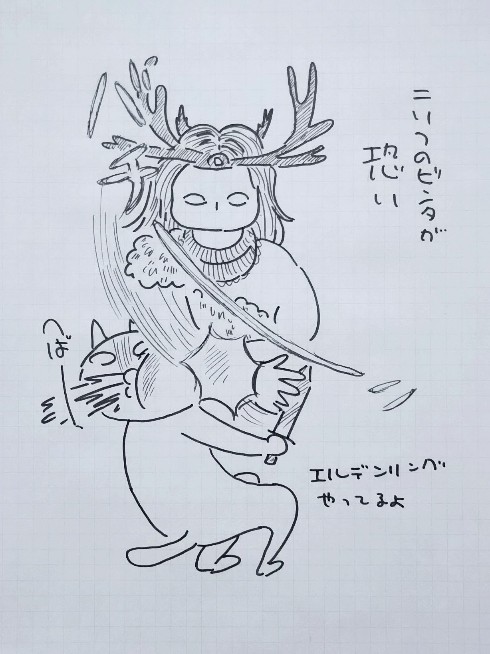 こいつのビンタが
恐い
へばー
エルデンリング
やってるよ